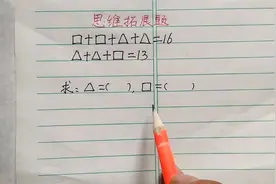 思维拓展题
□+□+△+△=16
△+△+□=13
求：△=(  ),□=(  )